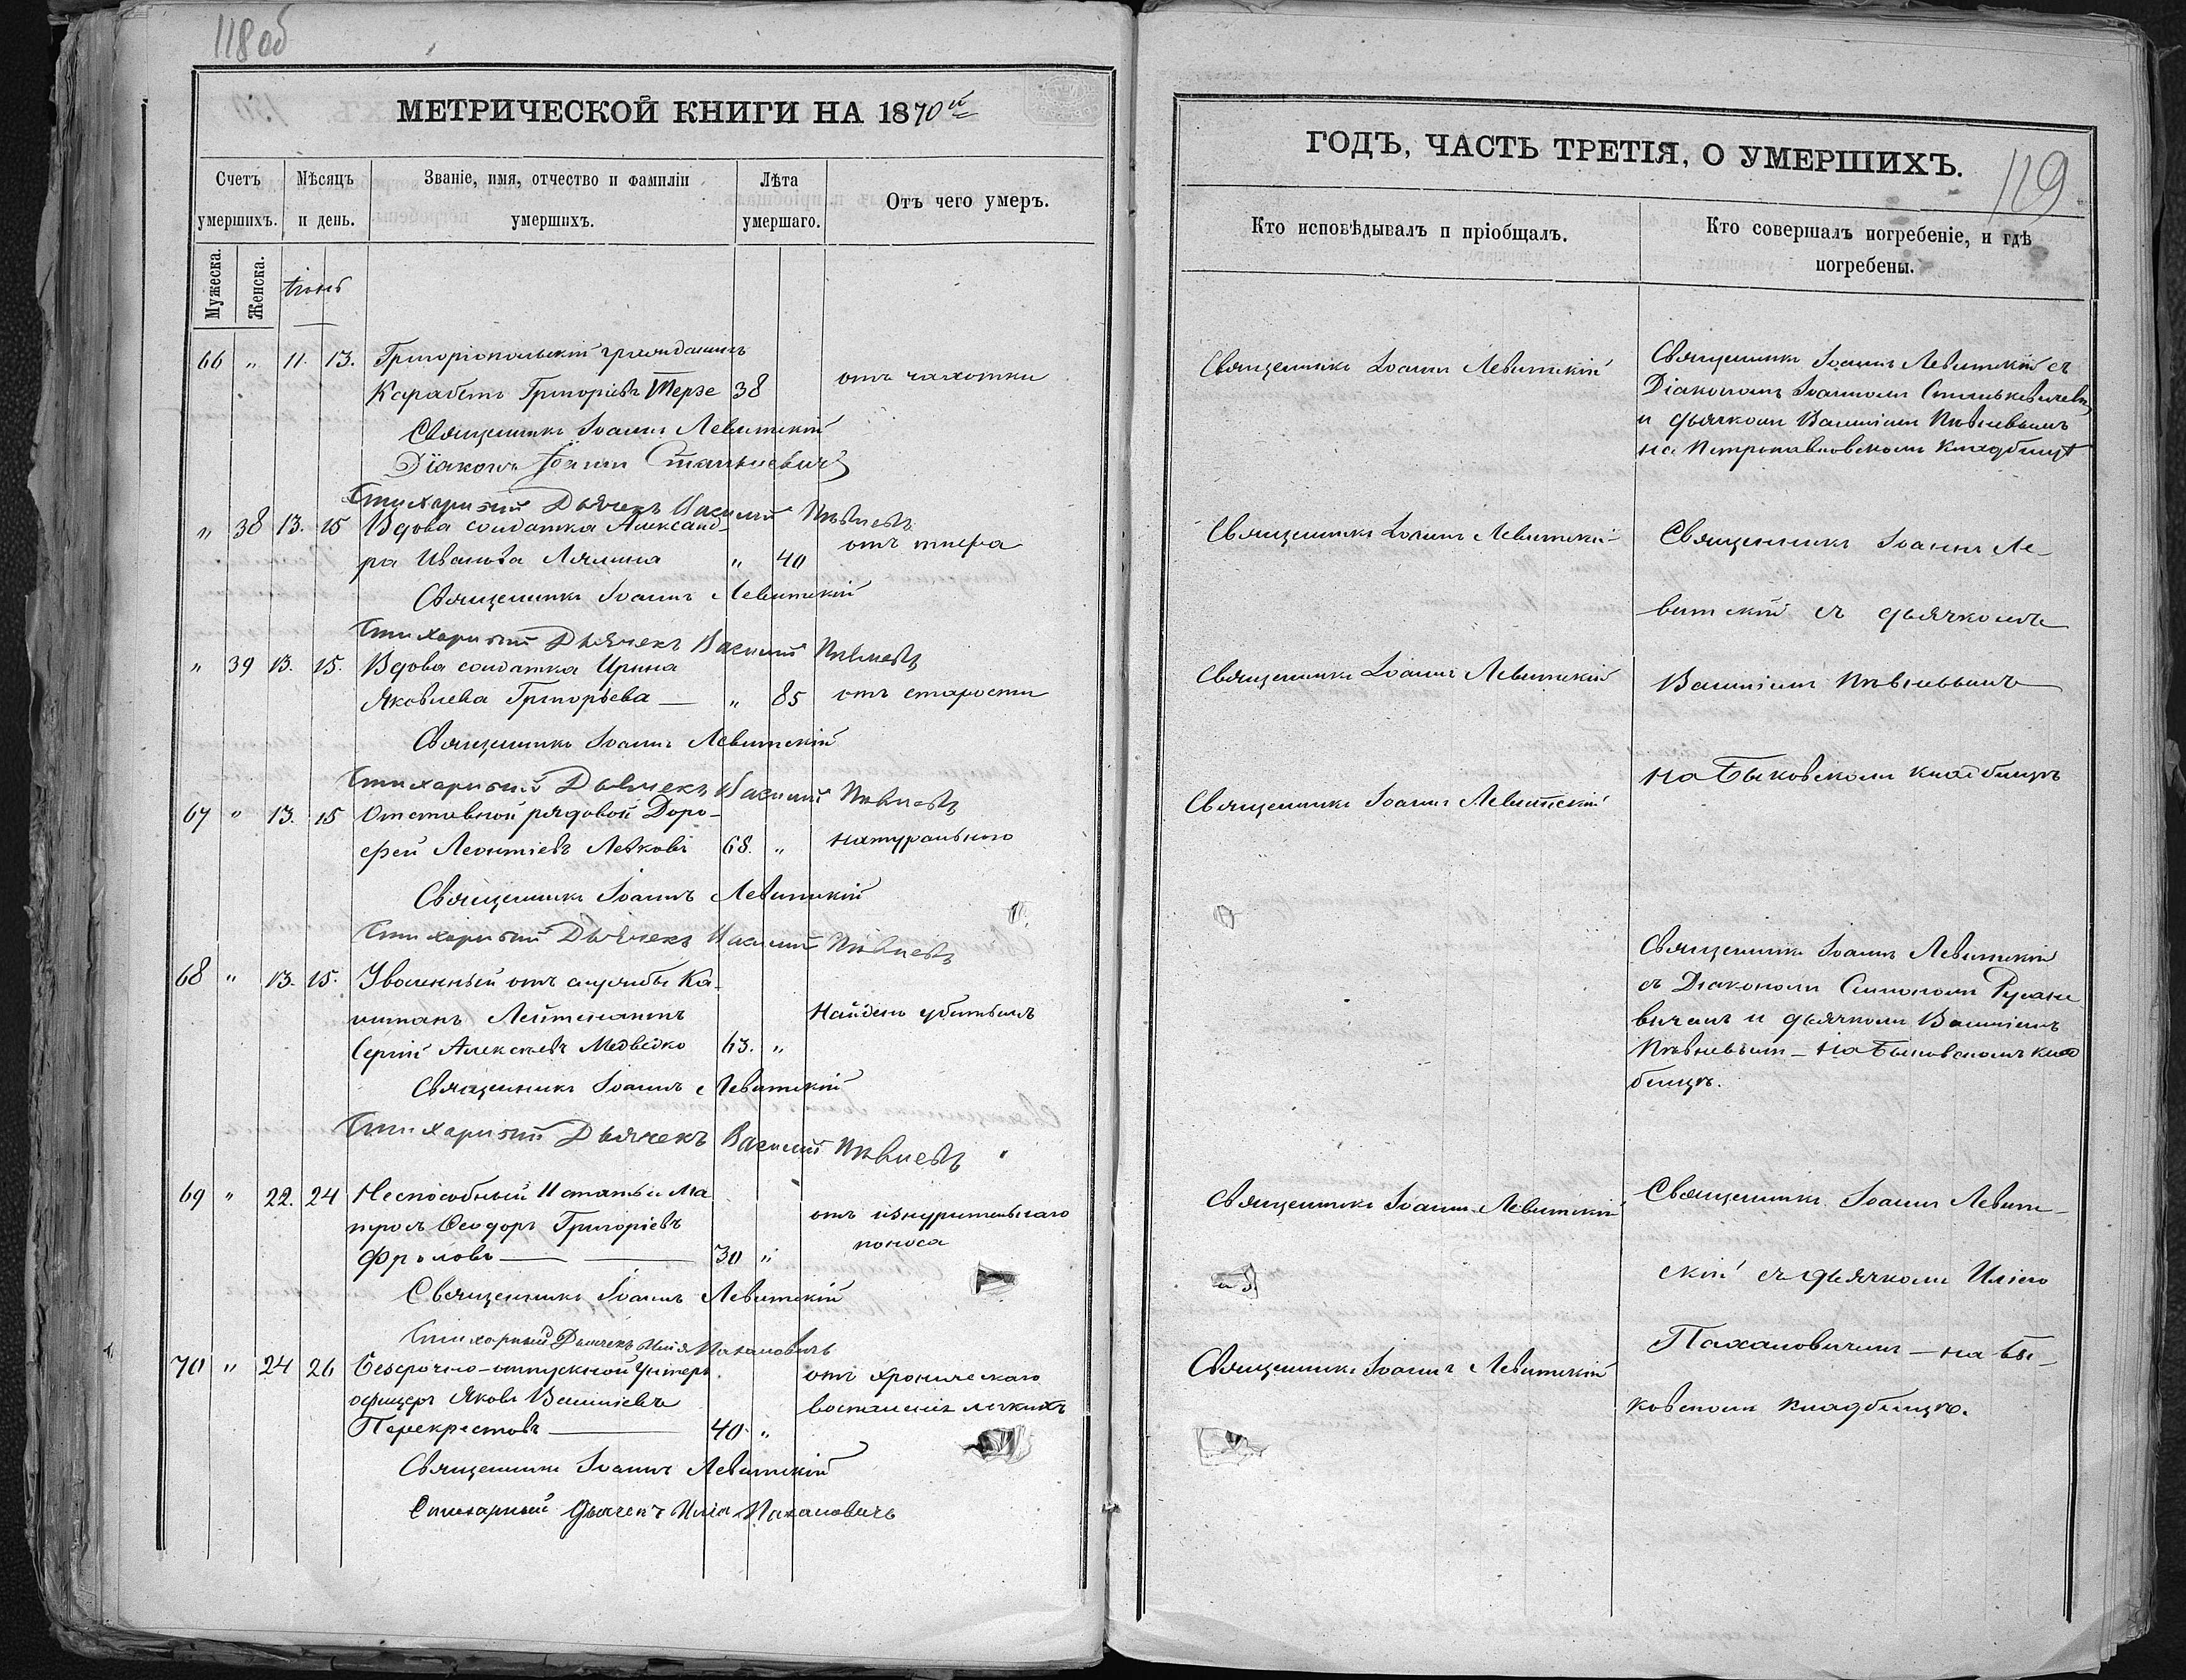 118 об
МЕТРИЧЕСКОЙ КНИГИ НА 1870й
Счетъ умершихъ.
Мѣсяцъ и день.
Званіе, имя, отчество и фамиліи умершихъ.
Лѣта умершаго.
Отъ чего умеръ.
Мужеска.
Женска.
66 " 11. 13. Григоріопольскій гражданинъ
Карабетъ Григорьевъ Терзе 38 отъ чахотки
Священникъ Іоаннъ Левитскій
Діаконъ Іоаннъ Станькевичъ
Стихарный Дьячекъ Василій Пѣвневъ
" 38 13. 15 Вдова солдатка Александ-
ра Иванова Лялина " 40 отъ тифа
Священникъ Іоаннъ Левитскій
Стихарный Дьячекъ Василій Пѣвневъ
" 39 13. 15. Вдова солдатка Ирина
Яковлева Григорьева — " 85 отъ старости
Священникъ Іоаннъ Левитскій
Стихарный Дьячекъ Василій Пѣвневъ
67 " 13. 15 Отставной рядовой Доро-
фей Леонтіевъ Левковъ 68. " натурального
Священникъ Іоаннъ Левитскій
Стихарный Дьячекъ Василій Пѣвневъ
68 " 13. 15. Уволенный отъ службы Ка-
питанъ Лейтенантъ Найденъ убитымъ
Сергій Алексѣевъ Медведко 63. "
Священникъ Іоаннъ Левитскій
Стихарный Дьячекъ Василій Пѣвневъ
69 " 22. 24 Неспособный II статьи ма
тросъ Ѳеодоръ Григоріевъ отъ изнурительнаго
Фроловъ — — 30 " поноса
Священникъ Іоаннъ Левитскій
Стихарный Дьячекъ Илія Пахаловичъ
70 " 24 26 Безсрочно-отпускной Унтеръ
офицеръ Яковъ Василіевъ отъ хроническаго
Перекрестовъ — 40. " воспаленія легкихъ
Священникъ Іоаннъ Левитскій
Стихарный Дьячекъ Илія Пахаловичъ
ГОДЪ, ЧАСТЬ ТРЕТІЯ, О УМЕРШИХЪ.
119
Кто исповѣдывалъ и пріобщалъ.
Кто совершалъ погребеніе, и гдѣ
погребены.
Священникъ Іоаннъ Левитскій
Священникъ Іоаннъ Левитскій
Священникъ Іоаннъ Левитскій
Священникъ Іоаннъ Левитскій
Священникъ Іоаннъ Левитскій
Священникъ Іоаннъ Левитскій
Священникъ Іоаннъ Левитскій съ
Діакономъ Іоанномъ Станькевичемъ
и дьячкомъ Василіемъ Пѣвневымъ
на Петропавловскомъ кладбищѣ
Священникъ Іоаннъ Ле-
витскій съ дьячкомъ
Василіемъ Пѣвневымъ
на Быковскомъ кладбищѣ
Священникъ Іоаннъ Левитскій
съ Діакономъ Симономъ
вичемъ и дьячкомъ Василіемъ
Пѣвневымъ — на Быковскомъ клад
бищѣ.
Священникъ Іоаннъ Левит-
скій съ дьячкомъ Иліею
Пахаловичемъ — на Бы-
ковскомъ кладбищѣ.